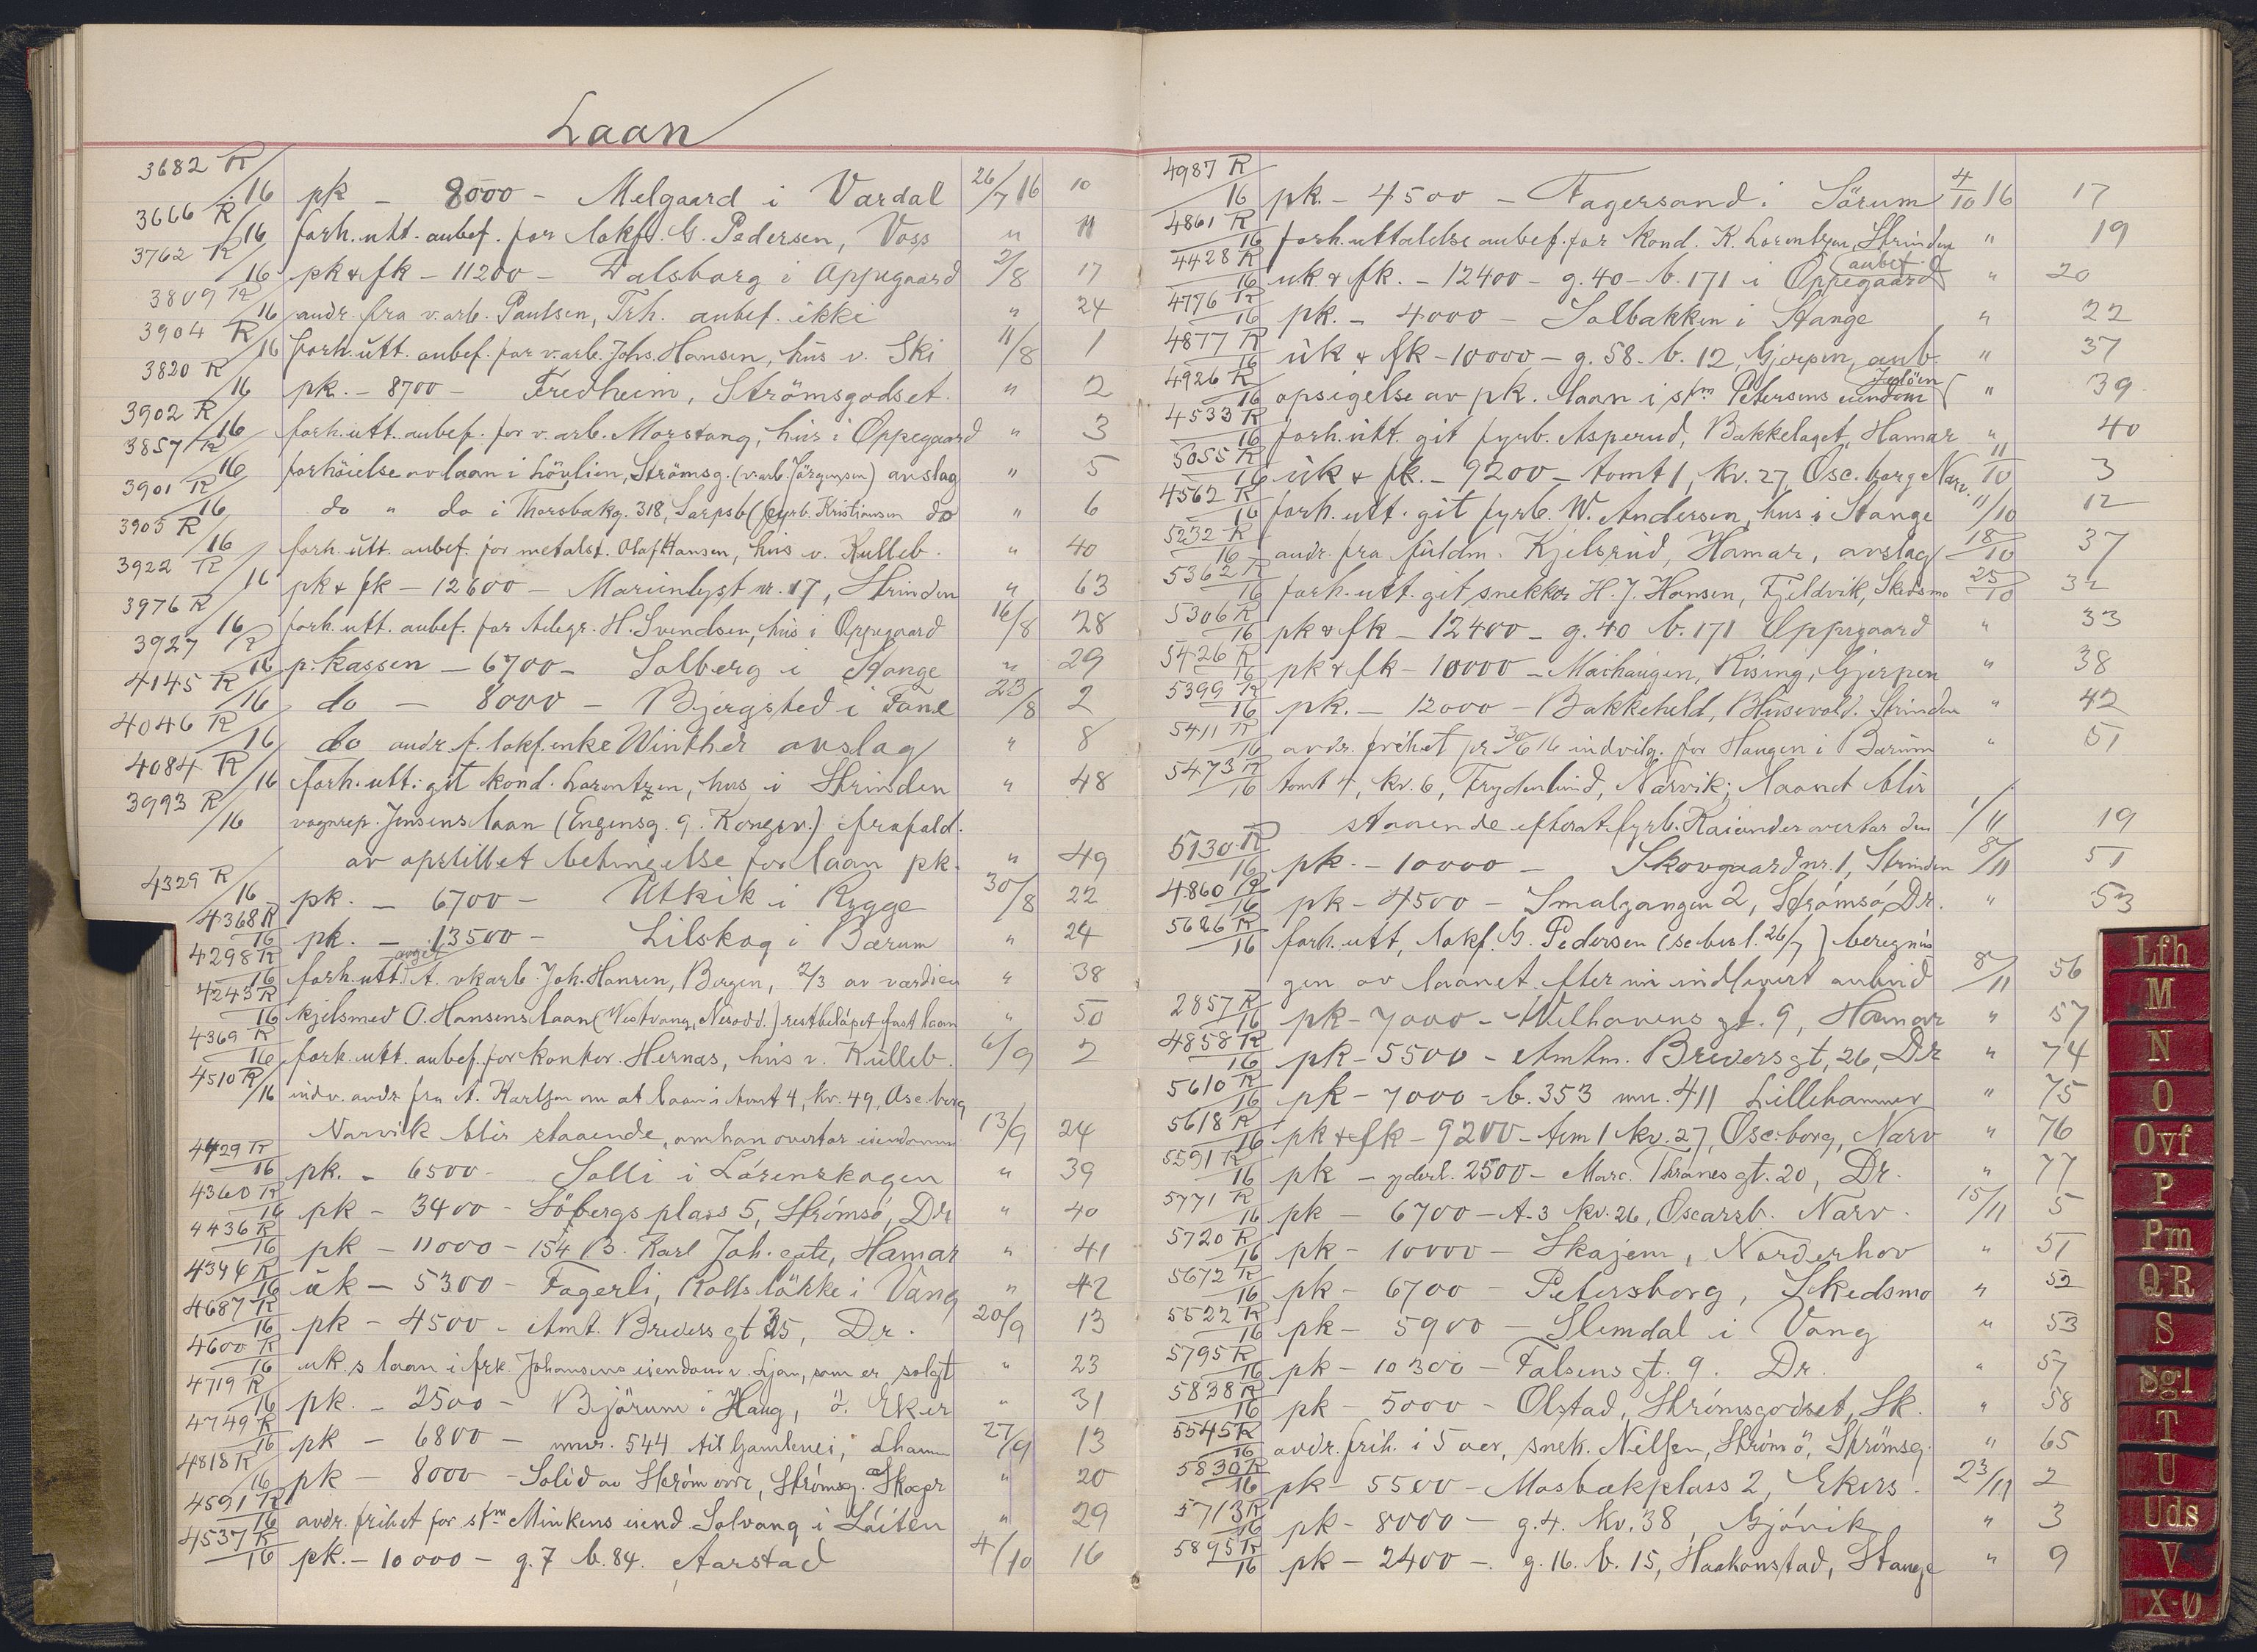 Laan
3682 R/16 pk - 8000 - Melgaard i Vardal 26/7 16 10
3666 R/16 forh. utt. anbef. for lokf. G. Pedersen, Voss " 11
3762 R/16 pk & fk - 11200 - Dalsborg i Oppegaard 2/8 17
3809 R/16 andr. fra v. arb. Paulsen, Trh. anbef. ikke " 24
3904 R/16 forh. utt. anbef. for v. arb. Johs. Hansen, hus v. Ski 11/8 1
3820 R/16 pk. - 8700 - Fredheim, Strömsgodset. " 2
3902 R/16 forh. utt. anbef. for v. arb. Morstang, hus i Oppegaard " 3
3857 R/16 forhöielse av laan i Lövlien, Strömsg. (v. arb. Jörgensen) avslag " 5
3901 R/16 do " do i Thorsbakg. 318, Sarpsb (fyrb. Kristiansen do " 6
3905 R/16 forh. utt. anbef. for metalst. Olaf Hansen, hus v. Kulleb. " 40
3922 R/16 pk & fk - 12600 - Marienlyst nr. 17, Strinden " 63
3976 R/16 forh. utt. anbef. for telegr. H. Svendsen, hus i Oppegaard 16/8 28
3927 R/16 p. kassen - 6700 - Solberg i Stange " 29
4145 R/16 do - 8000 - Bjergsted i Fane 23/8 2
4046 R/16 do andr. f. lokf. enke Winther avslag " 8
4084 R/16 forh. utt. git kond. Lorentzen, hus i Strinden " 48
3993 R/16 vognrep. Jensens laan (Engensg. 9. Kongsv.) frafald.
av opstillet betingelse for laan pk. " 49
4329 R/16 pk. - 6700 - Utkik i Rygge 30/8 22
4368 R/16 pk. - 13500 - Lilskog i Bærum " 24
4298 R/16 forh. utt. avgit A. vkarb. Joh. Hansen, Bergen, 2/3 av værdien " 38
4243 R/16 kjelsmed O. Hansens laan (Vestvang, Nesodd.) restbelöpet fast laan " 50
4369 R/16 forh. utt. anbef. for kontor. Hernæs, hus v. Kulleb. 6/9 2
4510 R/16 indv. andr fra A. Karlsen om at laan i tomt 4, kv. 49, Osc. borg
Narvik blir staaende, om han overtar eiendommen 13/9 24
4429 R/16 pk. - 6500 - Solli i Lörenskogen " 39
4360 R/16 pk - 3400 - Söbergs plass 5, Strömsö, Dr " 40
4436 R/16 pk - 11000 - 154 B. Karl Joh. gate, Hamar " 41
4394 R/16 uk - 5300 - Fagerli, Kollslökke i Vang " 42
4687 R/16 pk - 4500 - Amt. Breders gt 35, Dr. 20/9 13
4600 R/16 uk. s laan i frk. Johansens eiendom v. Ljan, som er solgt " 23
4719 R/16 pk. - 2500 - Björum i Haug, ö. Eker " 31
4749 R/16 pk - 6800 - mnr. 544 til Gamlevei, Lhamm 27/9 13
4818 R/16 pk - 8000 - Solid av Ström, Strömsg. Skoger " 20
4591 R/16 avdr. frihet for stm Minkens eiend Solvang i Löiten " 29
4537 R/16 pk. - 10000 - g. 7 b. 84. Aarstad 4/10 16
4987 R/16 pk. - 4500 - Fagersand i Sörum 4/10 16 17
4861 R/16 forh. uttalelse anbef. for kond. K. Lorentzen, Strinden " 19
4428 R/16 uk & fk. - 12400 - g. 40 - b. 171 i Oppegaard anbef. " 20
4776 R/16 pk. - 4000 - Solbakken i Stange " 22
4877 R/16 uk & fk - 10000 - g. 58 - b. 12, Gjerpen, anb. " 37
4926 R/16 opsigelse av pk. laan i stm Petersens eiendom Jeløen " 39
4533 R/16 forh. utt. git fyrb. Asperud, Bakkelaget, Hamar " 40
5055 R/16 uk & fk. - 9200 - tomt 1, kv. 27 Osc. borg Narv. 11/10 3
4562 R/16 forh. utt. git fyrb. W. Andersen, hus i Stange 11/10 12
5232 R/16 andr. fra fuldm. Kjelsrud, Hamar, avslag 18/10 37
5362 R/16 forh. utt. git snekker H. J. Hansen, Fjeldvik, Skedsmo 25/10 32
5306 R/16 pk & fk - 12400 - g. 40 b. 171 Oppegaard " 33
5426 R/16 pk & fk - 10000 - Maihaugen, Rising, Gjerpen " 38
5399 R/16 pk. - 12000 - Bakkeheld, Strinden " 42
5411 R/16 avdr. frihet pr 30/6 16 indvilg. for Haugen i Bærum " 51
5473 R/16 tomt 4, kv. 6, Frydenlund, Narvik; laanet blir
staaende efterat fyrb. Kaiander overtar den 1/11 19
5130 R/16 pk. - 10000 - Skovgaard nr. 1, Strinden 8/11 51
4860 R/16 pk - 4500 - Smalgangen 2, Strömsö, Dr. " 53
5686 R/16 forh. utt, lokf. G. Pedersen (se besl. 26/7) beregnin
gen av laanet efter ni indlevert anbud 8/11 56
2857 R/16 pk - 7000 - Welhavens gt. 9, Hamar " 57
4858 R/16 pk - 5500 - Amtm. Breders gt, 26, Dr " 74
5610 R/16 pk - 7000 - b. 353 mnr. 411 Lillehammer " 75
5618 R/16 pk & fk - 9200 - tom 1 kv. 27, Osc. borg, Narv " 76
5591 R/16 pk - yderl. 2500 - Marc. Thranes gt. 20, Dr. " 77
5771 R/16 pk - 6700 - t. 3 kv. 26, Oscarsb. Narv. 15/11 5
5720 R/16 pk - 10000 - Skajem, Norderhov " 51
5672 R/16 pk - 6700 - Petersborg, Skedsmo " 52
5522 R/16 pk - 5900 - Slemdal i Vang " 53
5795 R/16 pk - 10300 - Falsens gt. 9. Dr. " 57
5838 R/16 pk - 5000 - Olstad, Strömsgodset, Sk. " 58
5545 R/16 avdr. frih. i 5 aar, snek. Nilsen, Strömsö, Strömsg. " 65
5830 R/16 pk - 5500 - Mosbækplass 2, Ekers. 23/11 2
5713 R/16 pk - 8000 - g. 4. kv. 38, Gjövik " 3
5895 R/16 pk - 2400 - g. 16. b. 15, Haakonstad, Stange " 9
Lfh
M
N
O
Ovf
P
Pm
QR
S
Sgl
T
U
Uds
V
X-Ø